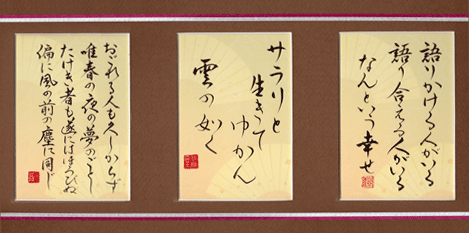 語りかける人がいる
語り合える人がいる
なんという幸せ
サラリと
生きて
ゆかん
雲の如く
おごれる人も久しからず
唯春の夜の夢のごとし
たけき者も遂にはほろびぬ
偏に風の前の塵に同じ